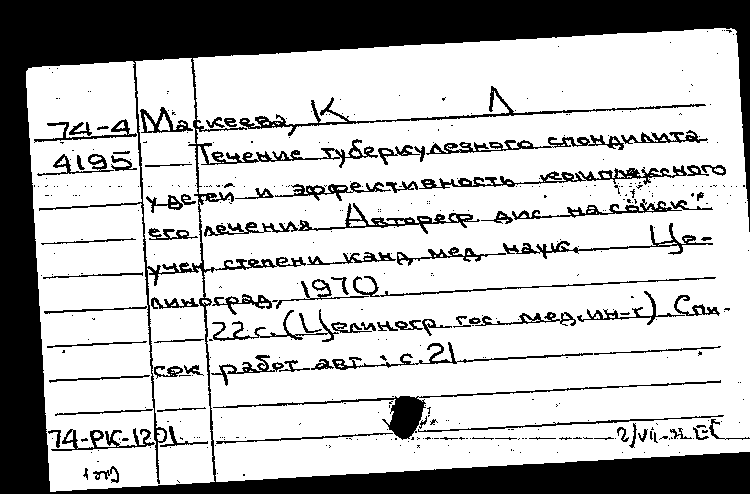 74-4 Маскеева, К Л
4195 Течение туберкулезного спондилита
у детей и эффективность комплексного
его лечения Автореф. дис на соиск.
учен. степени канд. мед. наук. Це-
линоград, 1970.
22 с. (Целиногр. гос. мед. ин-т). Спи-
сок работ авт : с. 21.
74-РК-1201.